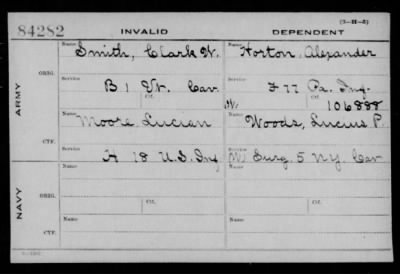 (3-H-5)
84282 INVALID DEPENDENT
Name Smith, Clark W. Name Horton, Alexander
ORIG. Service B 1 Vt. Cav Service F 77 Pa. Inf.
Ctf. Ctf. 106888
ARMY
Name Moore Lucian Name W. Woods, Lucius P.
CTF. Service H 18 U.S. Inf Service (W) Surg. 5 N.Y. Cav
Name Name
ORIG. Service Ctf. Service Ctf.
NAVY
Name Name
CTF. Service Service